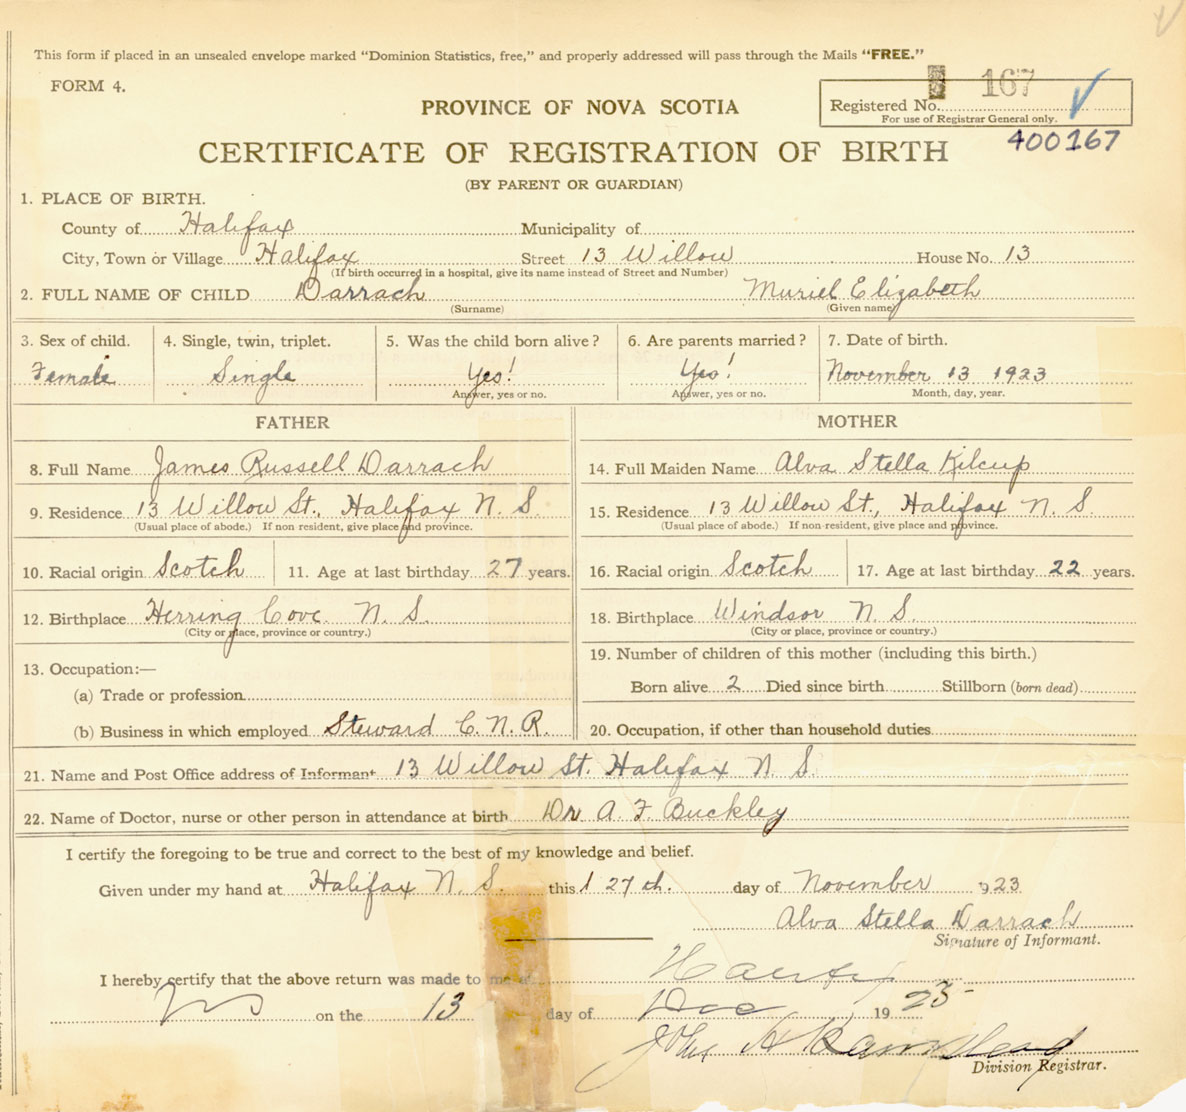 This form if placed in an unsealed envelope marked “Dominion Statistics, free,” and properly addressed will pass through the Mails “FREE.”
FORM 4.
167
Registered No.
For use of Registrar General only.
400167
PROVINCE OF NOVA SCOTIA
CERTIFICATE OF REGISTRATION OF BIRTH
(BY PARENT OR GUARDIAN)
1. PLACE OF BIRTH.
County of Halifax Municipality of
City, Town or Village Halifax Street 13 Willow House No. 13
(If birth occurred in a hospital, give its name instead of Street and Number)
2. FULL NAME OF CHILD Darrach Muriel Elizabeth
(Surname) (Given name)
3. Sex of child. 4. Single, twin, triplet. 5. Was the child born alive? 6. Are parents married? 7. Date of birth.
Female Single Yes! Yes! November 13 1923
Answer, yes or no. Answer, yes or no. Month, day, year.
FATHER MOTHER
8. Full Name James Russell Darrach 14. Full Maiden Name Alva Stella Kilcup
9. Residence 13 Willow St., Halifax N. S. 15. Residence 13 Willow St., Halifax N. S.
(Usual place of abode.) If non resident, give place and province. (Usual place of abode.) If non-resident, give place and province.
10. Racial origin Scotch 11. Age at last birthday 27 years. 16. Racial origin Scotch 17. Age at last birthday 22 years.
12. Birthplace Herring Cove N. S. 18. Birthplace Windsor N. S.
(City or place, province or country.) (City or place, province or country.)
13. Occupation:— 19. Number of children of this mother (including this birth.)
(a) Trade or profession Born alive 2 Died since birth Stillborn (born dead)
(b) Business in which employed Steward C. N. R. 20. Occupation, if other than household duties
21. Name and Post Office address of Informant 13 Willow St. Halifax N. S.
22. Name of Doctor, nurse or other person in attendance at birth Dr A. F. Buckley
I certify the foregoing to be true and correct to the best of my knowledge and belief.
Given under my hand at Halifax N. S. this 27th. day of November 923
Alva Stella Darrach
Signature of Informant.
I hereby certify that the above return was made to me at
on the 13 day of Dec 19
John H
Division Registrar.